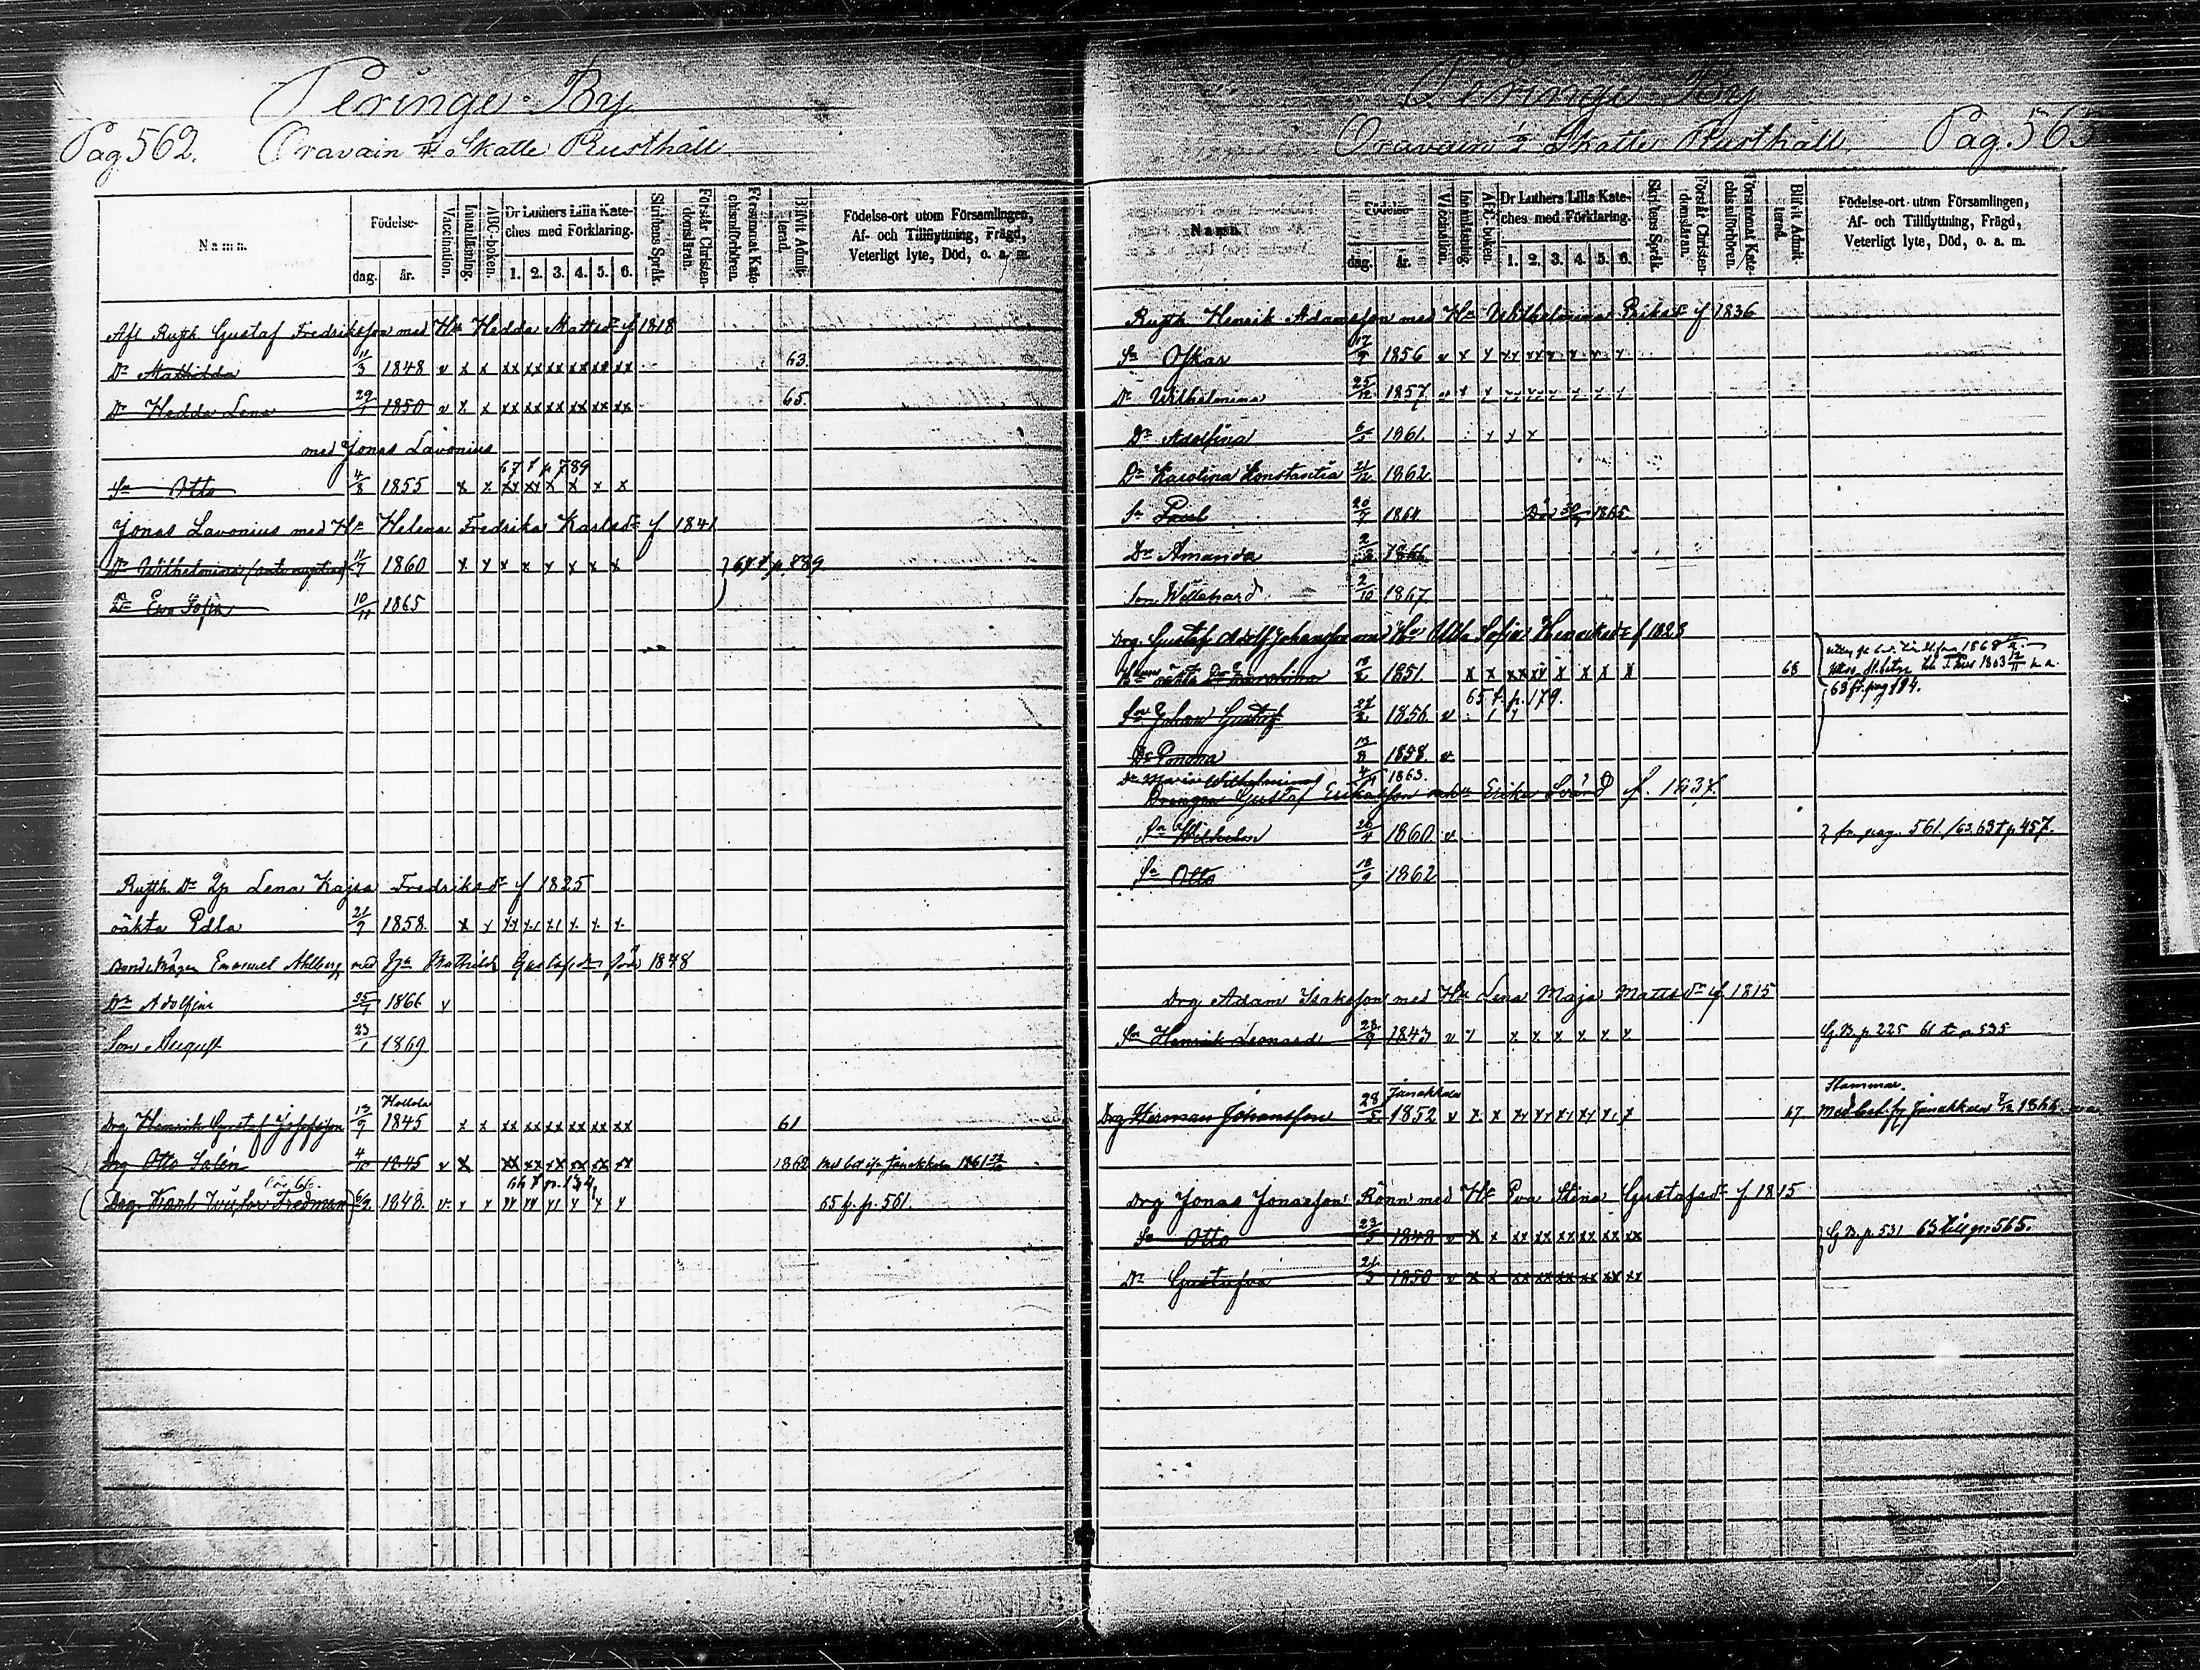 Peringe By
Pag 562. Oravain Skatte Rusthåll
Namn.
Födelse-
dag.
år.
Vaccination.
Innanläsning.
ABC-boken.
Dr Luthers Lilla Kate-
ches med Förklaring.
1. 2. 3. 4. 5. 6.
Skriftens Språk.
Förstår Christen-
domsläran.
Försummat Kate-
chismiförhören.
Blifvit Admit-
terad.
Födelse-ort utom Församlingen,
Af- och Tillflyttning, Frägd,
Veterligt lyte, Död, o. a. m.
Afl Rusth. Gustaf Fredriksson med Hu Hedda Mattsdr f 1818
Dr Mathilda 11/3 1848 v x x xx xx xx xx xx xx 63.
Dr Hedda Lena 29/1 1850 v x x xx xx xx xx xx xx 65.
med Jonas Lavonius
67 t p 789
Sn Otto 4/8 1855 x x xx xx x x x x
Jonas Lavonius med Hu Helena Fredrika Karlsdr f 1841
Dr Wilhelmina (ante nuptias) 11/7 1860 x x x x x x x x
Dr Eva Sofia 10/11 1865
Rusth Dr Qp Lena Kajsa Fredriksdr f 1825
oäkta Edla 21/9 1858.
Emanuel Ahlberg med Hu Mathilda Gustafsdr född 1848
Dr Adolfina 1866 v
Son August 23/1 1869
Hollola
Drg Henrik Gustaf Josefsson 13/9 1845 x x xx xx xx xx xx xx 61
Drg Otto Salén 1845 v x xx xx xx xx xx xx 1862 Med bet ifr Janakkala 1861
66 t p. 134
Drg Karl Gustav Fredman 1848. 65 f. p. 561.
Peringe By
Oravain 1/2 Skatte Rusthåll. Pag. 563
Namn.
Födelse-
dag.
år.
Vaccination.
Innanläsning.
ABC-boken.
Dr Luthers Lilla Kate-
ches med Förklaring.
1. 2. 3. 4. 5. 6.
Skriftens Språk.
Förstår Christen-
domsläran.
Försummat Kate-
chismiförhören.
Blifvit Admit-
terad.
Födelse-ort utom Församlingen,
Af- och Tillflyttning, Frägd,
Veterligt lyte, Död, o. a. m.
Rusth Henrik Adamsson med Hu Wilhelmina Eriksdr f 1836
Sn Oskar 17/9 1856
Dr Wilhelmina 25/12 1857
Dr Adolfina 1861.
Dr Karolina Konstantia 21/12 1862
Sn Paul 1864 Död 1865
Dr Amanda 1866
Son Willehard 2/10 1867
Drg. Gustaf Adolf Johansson med Hu Ulla Sofia Henriksdr f 1823
Hans oäkta Dr Karolina 1851. x x xx xx x x x x 68
65 t. p. 179.
Sn Johan Gustaf 1856 v
63 fr. pag 194.
Dr Emma 13/8 1858 v
Dr Maria Wilhelmina 1863.
Drengen Gustaf Eriksson m Hu Erika f. 1837.
Sn Wilhelm 1860 v fr. pag. 561. 63 t p 457.
Sn Otto 18/9 1862
Drg Adam Isaksson med Hu Lena Maja Mattsdr f 1815
Sn Henrik Leonard 28/9 1843 G.B. p 225 61 t p 535
Janakkala
Stammar.
Drg Herman Johansson 28/5 1852 67 Med bet. fr Janakkala 1866
Drg Jonas Jonasson Rönn med Hu Eva Stina Gustafsdr f. 1815
Sn Otto 23/3 1848 v x x xx xx xx xx xx xx G.B. p. 531 63 till p. 565.
Dr Gustafva 21/3 1850 v x x xx xx xx xx xx xx